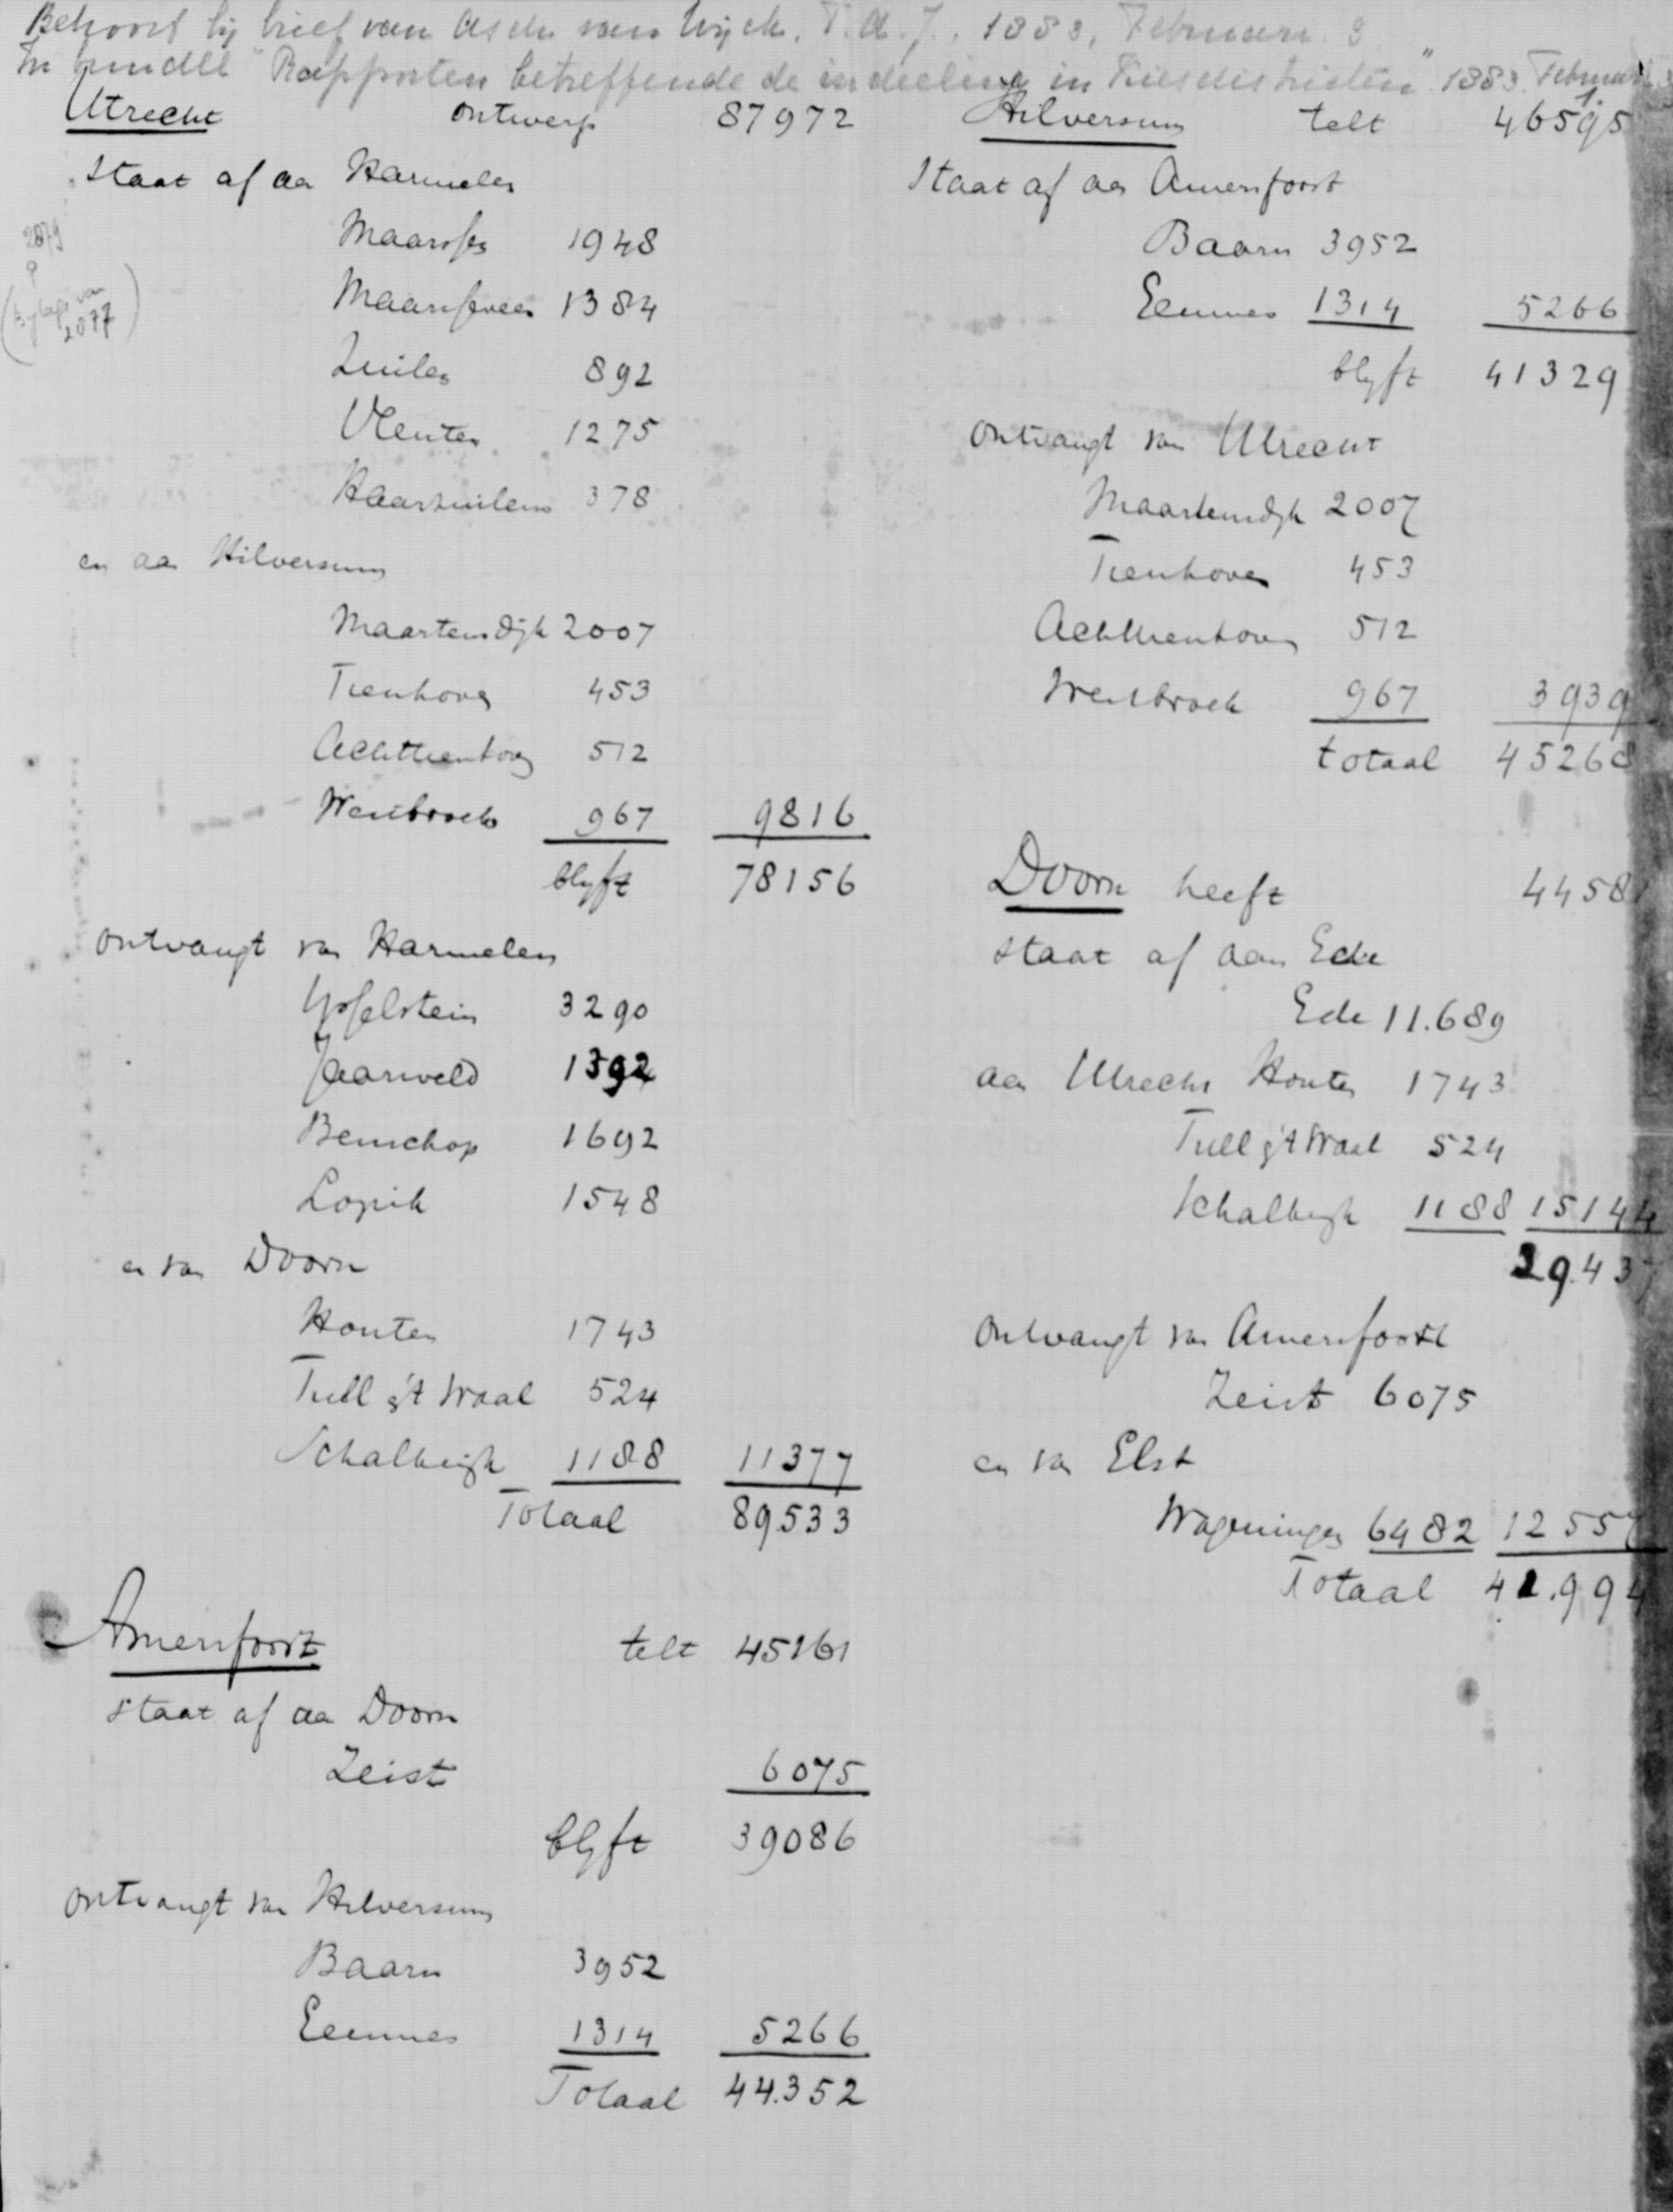 Behoort bij brief van Asch van Wijck. T.A.J. 1883, Februari 3
In bundel "Rapporten betreffende de indeeling in Kiesdistricten" 1883. Februari
Utrecht ontwerp 87972
staat af aa Harmelen
2879
(Bylage van 2077)
Maarssen 1948
Maarsseveen 1384
Zuilen 892
Vleuten 1275
Haarzuilens 378
en aa Hilversum
Maartensdyk 2007
Tienhoven 453
Achttienhoven 512
Westbroek 967 9816
blyft 78156
ontvangt van Harmelen
Ysselstein 3290
Jaarsveld 1392
Benschop 1692
Lopik 1548
en van Doorn
Houten 1743
Tull g't Waal 524
Schalkwijk 1188 11377
Totaal 89533
Amersfoort telt 45161
staat af aa Doorn
Zeist 6075
blyft 39086
ontvangt van Hilversum
Baarn 3952
Eemnes 1314 5266
Totaal 44.352
Hilversum telt 46595
Staat af aa Amersfoort
Baarn 3952
Eemnes 1314 5266
blyft 41329
ontvangt van Utrecht
Maartensdyk 2007
Tienhoven 453
Achttienhoven 512
Westbroek 967 3939
totaal 45268
Doorn heeft 4458
staat af aan Ede
Ede 11.689
aan Utrecht Houten 1743
Tull g't Waal 524
Schalkwyk 1188 15144
29.437
ontvangt van Amersfoort
Zeist 6075
en van Elst
Wageningen 6482 12557
Totaal 41.994